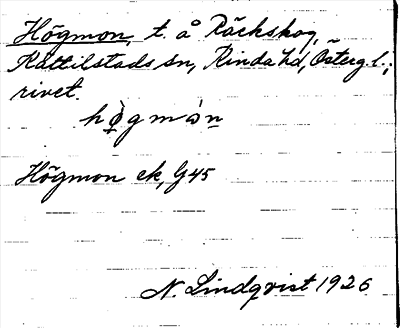 Högmon, t. å Räckskog,
Kättilstads sn, Kinda hd, Österg. l.;
rivet.
hö̀gmȯ́n
Högmon ek, G45
N. Lindqvist 1926